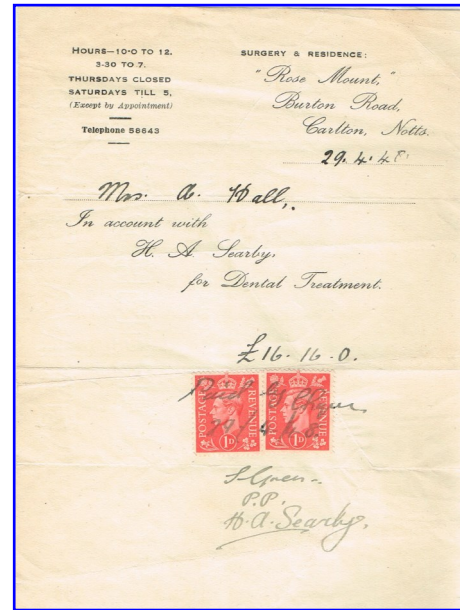 HOURS—10·0 TO 12.
3-30 TO 7.
THURSDAYS CLOSED
SATURDAYS TILL 5,
(Except by Appointment)
Telephone 58643
SURGERY & RESIDENCE:
"Rose Mount,"
Burton Road,
Carlton, Notts.
29. 4. 48.
Mrs. A. Hall,.
In account with
H. A. Searby,
for Dental Treatment.
£16-16-0.
Paid
29/4/48
POSTAGE REVENUE
1D
POSTAGE REVENUE
1D
P.P.
H. A. Searby.